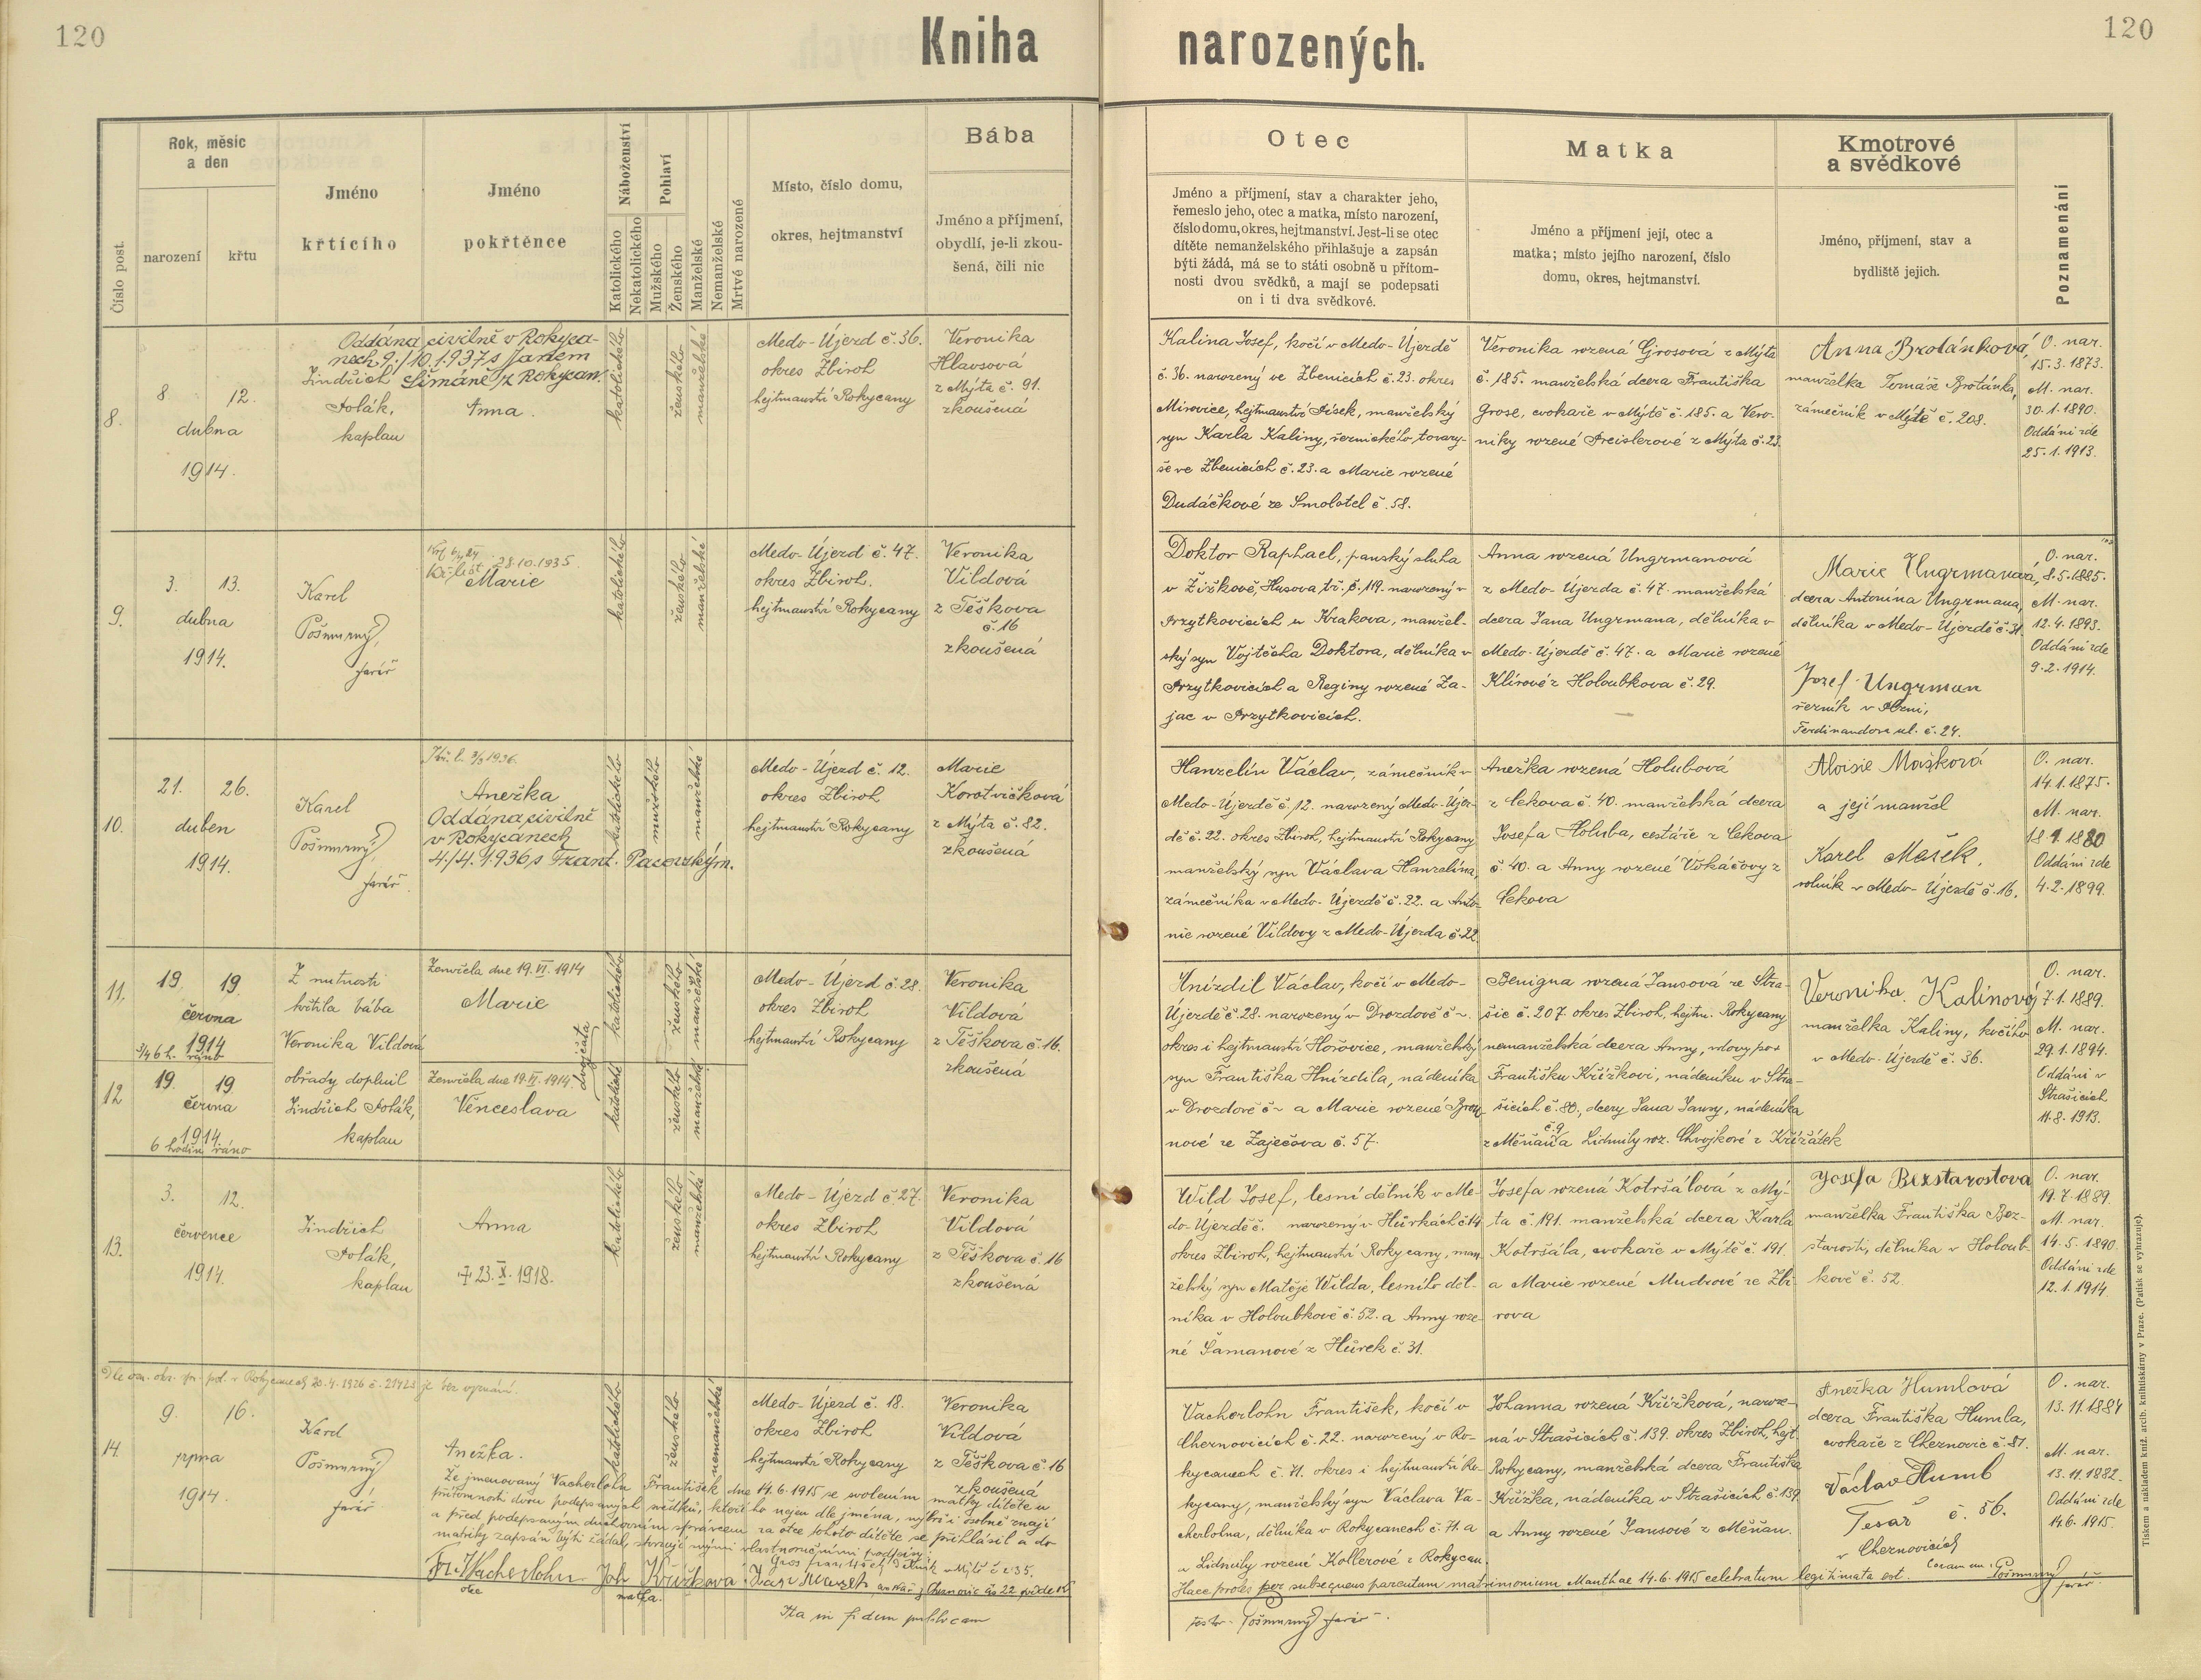 120
Kniha
narozených.
120
Číslo post.
Rok, měsíc
a den
narození
křtu
Jméno
křtícího
Jméno
pokřtěnce
Náboženství
Katolického
Nekatolického
Pohlaví
Mužského
Ženského
Manželské
Nemanželské
Mrtvě narozené
Místo, číslo domu,
okres, hejtmanství
Bába
Jméno a příjmení,
obydlí, je-li zkou-
šená, čili nic
Otec
Jméno a příjmení, stav a charakter jeho,
řemeslo jeho, otec a matka, místo narození,
číslo domu, okres, hejtmanství. Jest-li se otec
dítěte nemanželského přihlašuje a zapsán
býti žádá, má se to státi osobně u přítom-
nosti dvou svědků, a mají se podepsati
on i ti dva svědkové.
Matka
Jméno a příjmení její, otec a
matka; místo jejího narození, číslo
domu, okres, hejtmanství.
Kmotrové
a svědkové
Jméno, příjmení, stav a
bydliště jejich.
Poznamenání
8.
8 12.
dubna
1914.
Oddána civilně v Rokyca-
nech 9./10.1937 s Janem
Šimáně z Rokycan.
Jindřich
Polák,
kaplan
Anna.
katolického
ženského
manželské
Medo-Újezd č. 36.
okres Zbiroh
hejtmanství Rokycany
Veronika
Hlavsová
z Mýta č. 91.
zkoušená
Kalina Josef, kočí v Medo-Újezdě
č. 36. narozený ve Zbenicích č. 23. okres
Mirovice, hejtmanství Písek, manželský
syn Karla Kaliny, řeznického tovary-
še ve Zbenicích č. 23. a Marie rozené
Dudáčkové ze Smolotel č. 58.
Veronika rozená Grosová z Mýta
č. 185. manželská dcera Františka
Grose, cvokaře v Mýtě č. 185. a Vero-
niky rozené Preislerové z Mýta č. 23.
Anna Brotánková,
manželka Tomáše Brotánka,
zámečník v Mýtě č. 208.
O. nar.
15.3.1873.
M. nar.
30.1.1890.
Oddáni zde
25.1.1913.
9.
3. 13.
dubna
1914.
Karel
Pošmurný,
farář
28.10.1935
Marie
katolického
ženského
manželské
Medo-Újezd č. 47.
okres Zbiroh.
hejtmanství Rokycany
Veronika
Vildová
z Těškova
č. 16
zkoušená
Doktor Raphael, panský sluha
v Žižkově, Husova tř. č. 119. narozený v
Przytkovicích u Krakova, manžel-
ský syn Vojtěcha Doktora, dělníka v
Przytkovicích a Reginy rozené Za-
jac v Przytkovicích.
Anna rozená Ungrmanová
z Medo-Újezda č. 47. manželská
dcera Jana Ungrmana, dělníka v
Medo-Újezdě č. 47. a Marie rozené
Klírové z Holoubkova č. 29.
Marie Ungrmanová,
dcera Antonína Ungrmana,
dělníka v Medo-Újezdě č. 31.
Josef Ungrman
řezník v Plzni,
Ferdinandova ul. č. 24.
O. nar.
8.5.1885.
M. nar.
12.4.1893.
Oddáni zde
9.2.1914.
10.
21. 26.
duben
1914.
Karel
Pošmurný,
farář.
Anežka
Oddána civilně
v Rokycanech
4./4. 1936 s Frant. Pacovským.
katolického
mužského
manželské
Medo-Újezd č. 12.
okres Zbiroh
hejtmanství Rokycany
Marie
Korotvičková
z Mýta č. 82.
zkoušená
Hanzelín Václav, zámečník v
Medo-Újezdě č. 12. narozený Medo-Újez-
dě č. 22. okres Zbiroh, hejtmanství Rokycany
manželský syn Václava Hanzelína,
zámečníka v Medo-Újezdě č. 22. a Anto-
nie rozené Vildovy z Medo-Újezda č. 22.
Anežka rozená Holubová
z Cekova č. 40. manželská dcera
Josefa Holuba, cestáře z Cekova
č. 40. a Anny rozené Vokáčovy z
Cekova
Aloisie Mašková
a její manžel
Karel Mašek,
rolník v Medo-Újezdě č. 16.
O. nar.
14.1.1875.
M. nar.
18.9.1880
Oddáni zde
4.2.1899.
11.
19. 19.
června
1914
3/4 6 h. ráno
Z nutnosti
křtila bába
Veronika Vildová
Zemřela dne 19. VI. 1914
Marie
dvojčata
katolického
ženského
manželské
Medo-Újezd č. 28.
okres Zbiroh
hejtmanství Rokycany
Veronika
Vildová
z Těškova č. 16.
zkoušená
12
19. 19.
června
1914
6 hodin ráno
obřady doplnil
Jindřich Polák,
kaplan
Zemřela dne 19. VI. 1914
Venceslava
ženského
Hnízdil Václav, kočí v Medo-
Újezdě č. 28. narozený v Drozdově č ~.
okres i hejtmanství Hořovice, manželský
syn Františka Hnízdila, nádeníka
v Drozdově č ~ a Marie rozené
nové ze Zaječova č. 57.
Benigna rozená Jansová ze Stra-
šic č. 207. okres Zbiroh, hejtm. Rokycany
nemanželská dcera Anny, vdovy po
Františku Křížkovi, nádeníku v Stra-
šicích č. 80, dcery Jana Jansy, nádeníka
č. 9
z Měňan a Lidmily roz. Chvojkové z Křižátek
Veronika Kalinová
manželka Kaliny, kočího
v Medo-Újezdě č. 36.
O. nar.
7.1.1889.
M. nar.
29.1.1894.
Oddáni v
Strašicích
11.8.1913.
13.
3. 12.
července
1914.
Jindřich
Polák,
kaplan
Anna
† 23. X. 1918.
katolického
ženského
manželské
Medo-Újezd č. 27.
okres Zbiroh
hejtmanství Rokycany
Veronika
Vildová
z Těškova č. 16
zkoušená
Wild Josef, lesní dělník v Me-
do-Újezdě č. narozený v Hůrkách č. 14
okres Zbiroh, hejtmanství Rokycany, man-
želský syn Matěje Wilda, lesního děl-
níka v Holoubkově č. 52. a Anny roze-
né Šamanové z Hůrek č. 31.
Josefa rozená Kotršálová z Mý-
ta č. 191. manželská dcera Karla
Kotršála, cvokaře v Mýtě č. 191.
a Marie rozené Mudrové ze Zbi-
rova
Josefa Bezstarostova
manželka Františka Bez-
starosti, dělníka v Holoub-
kově č. 52.
O. nar.
19.7.1889.
M. nar.
14.5.1890.
Oddáni zde
12.1.1914.
Dle ozn. okr. spr. pol. v Rokycanech 20.4.1926 č. 21423 je bez vyznání.
14.
9. 16.
srpna
1914.
Karel
Pošmurný
farář
Anežka.
katolického
ženského
nemanželské
Medo-Újezd č. 18.
okres Zbiroh
hejtmanství Rokycany
Veronika
Vildová
z Těškova č. 16
zkoušená
Že jmenovaný Vacherlohn František dne 14.6.1915 se svolením matky dítěte u
přítomnosti dvou podepsaných svědků, kteří ho nejen dle jména, nýbrž i osobně znají
a před podepsaným duchovním správcem za otce tohoto dítěte se přihlásil a do
matriky zapsán býti žádal, stvrzují svými vlastnoručními podpisy:
Fr. Wacherlohn
otec
Joh Křížková
matka.
Ita in fidem publicam
Vacherlohn František, kočí v
Cheznovicích č. 22. narozený v Ro-
kycanech č. 71. okres i hejtmanství Ro-
kycany, manželský syn Václava Va-
cherlohna, dělníka v Rokycanech č. 71. a
a Lidmily rozené Kollerové z Rokycan.
Johanna rozená Křížková, naroze-
ná v Strašicích č. 139. okres Zbiroh, hejt.
Rokycany, manželská dcera Františka
Křížka, nádeníka v Strašicích č. 139
a Anny rozené Jansové z Měňan.
Anežka Humlová
dcera Františka Humla,
cvokaře z Cheznovic č. 81.
Václav Huml
Tesař č. 56.
v Cheznovicích
O. nar.
13.11.1884
M. nar.
13.11.1882.
Oddáni zde
14.6.1915.
Haec proles per subsequens parentum matrimonium Manthae 14.6.1915 celebratum legitimata est. Coram me: Pošmurný farář.
testor Pošmurný farář.
Tiskem a nákladem kníž. arcib. knihtiskárny v Praze. (Patisk se vyhrazuje).